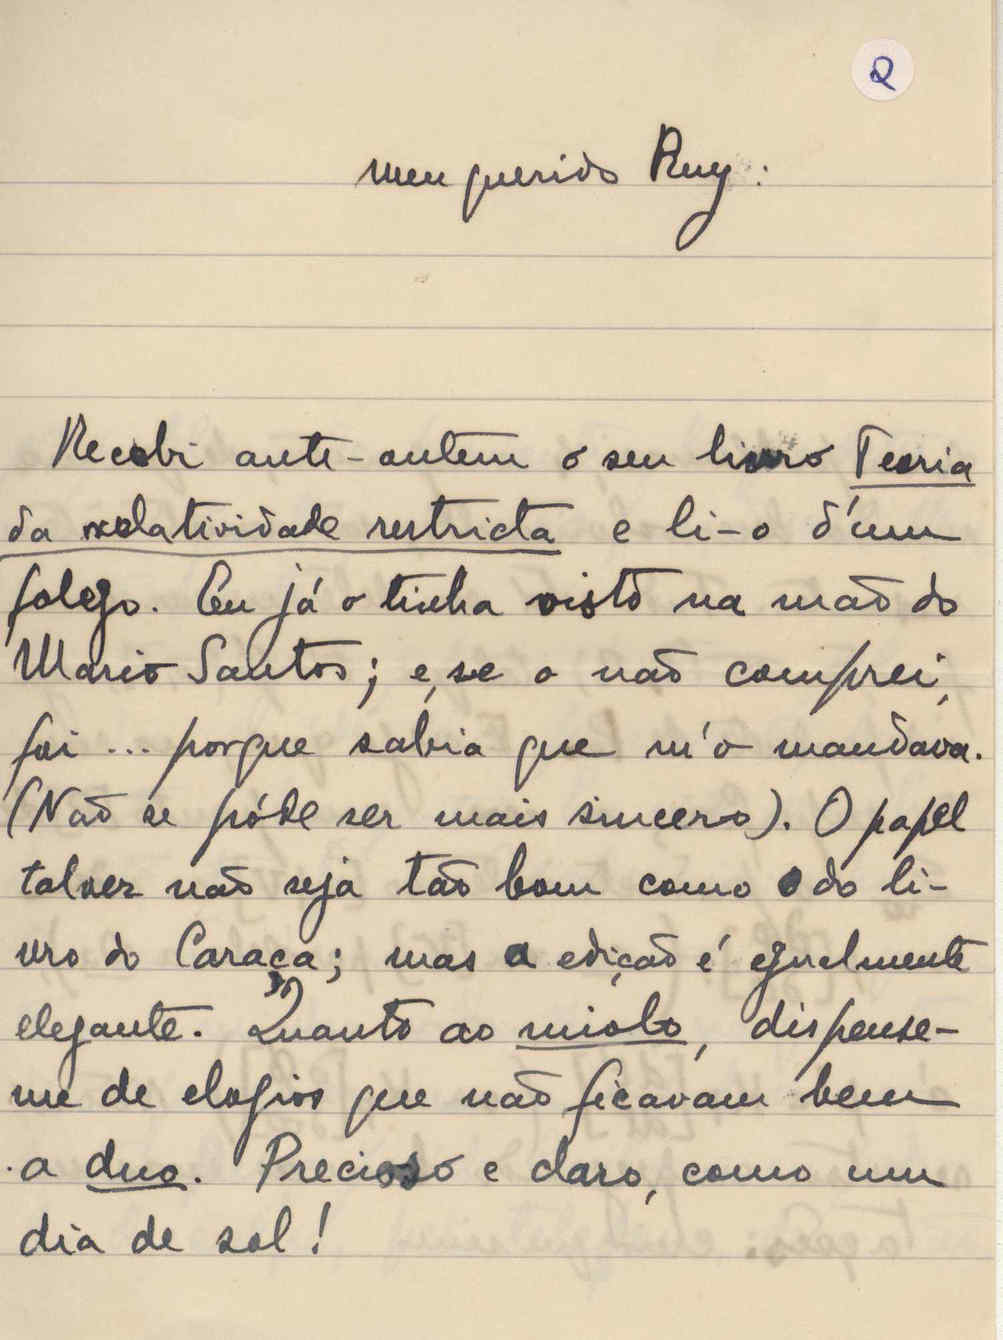 2
Meu querido Ruy:
Recebi ante-ontem o seu livro Teoria
da relatividade restricta e li-o d'um
folego. Eu já o tinha visto na mão do
Mario Santos; e, se o não comprei,
foi ... porque sabia que m'o mandava.
(Não se póde ser mais sincero). O papel
talvez não seja tão bom como o do li-
vro do Caraça; mas a edição é egualmente
elegante. Quanto ao miolo, dispense-
me de elogios que não ficavam bem
a duo. Precioso e claro, como um
dia de sol!